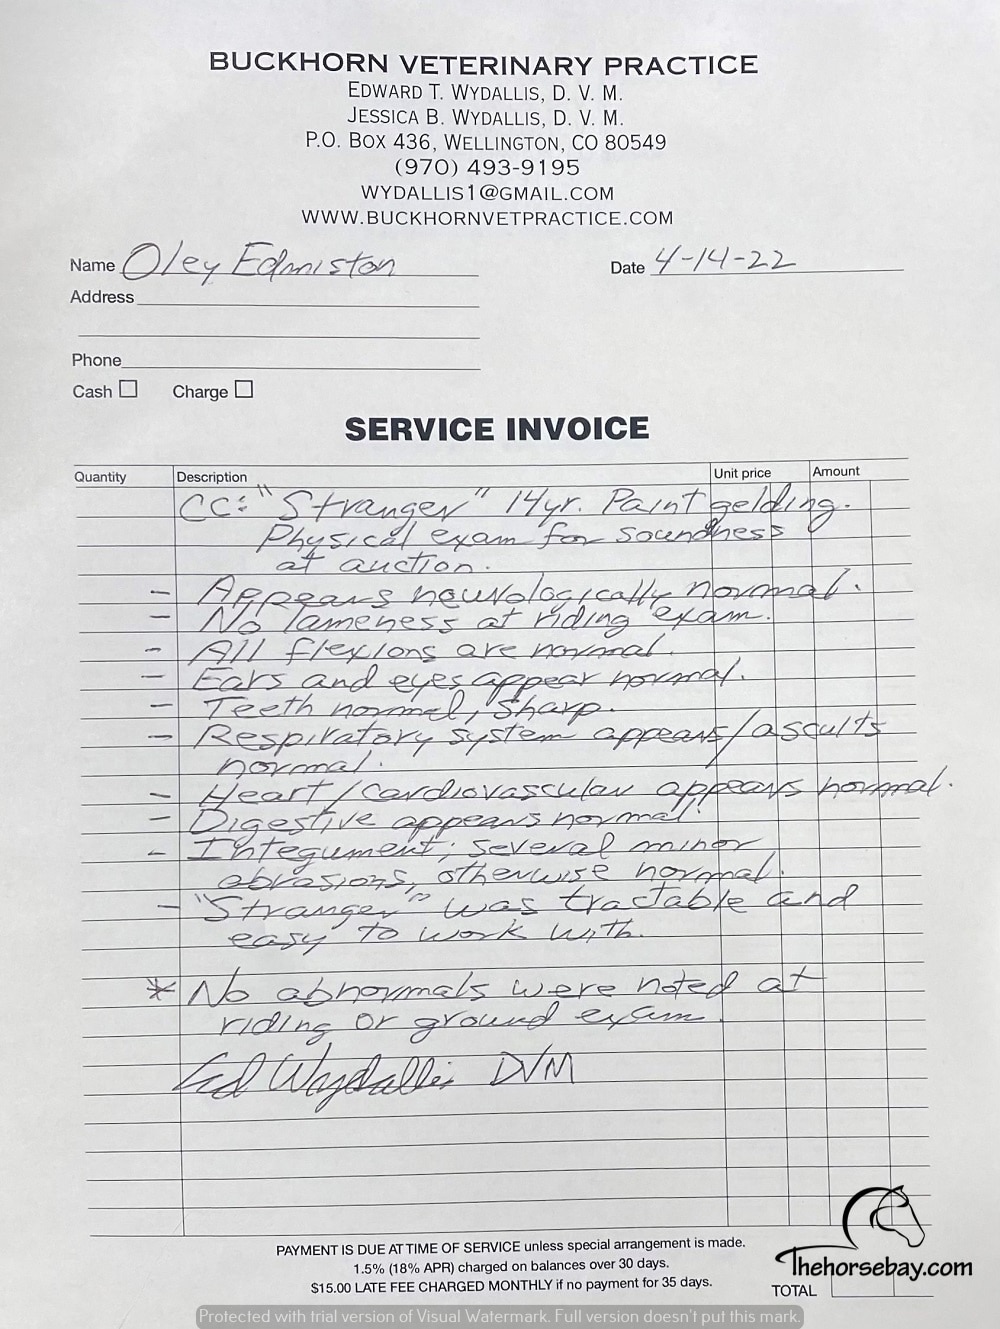 BUCKHORN VETERINARY PRACTICE
EDWARD T. WYDALLIS, D. V. M.
JESSICA B. WYDALLIS, D. V. M.
P.O. BOX 436, WELLINGTON, CO 80549
(970) 493-9195
WYDALLIS1@GMAIL.COM
WWW.BUCKHORNVETPRACTICE.COM
Name Oley Edmiston Date 4-14-22
Address
Phone
Cash Charge
SERVICE INVOICE
Quantity Description Unit price Amount
CC: "Stranger" 14yr. Paint gelding.
Physical exam for soundness
at auction.
- Appears neurologically normal.
- No lameness at riding exam.
- All flexions are normal.
- Ears and eyes appear normal.
- Teeth normal, sharp.
- Respiratory system appears/ascults
normal.
- Heart/cardiovascular appears normal.
- Digestive appears normal.
- Integument; several minor
abrasions, otherwise normal.
- "Stranger" was tractable and
easy to work with.
* No abnormals were noted at
riding or ground exam.
Ed Wydallis DVM
PAYMENT IS DUE AT TIME OF SERVICE unless special arrangement is made.
1.5% (18% APR) charged on balances over 30 days.
$15.00 LATE FEE CHARGED MONTHLY if no payment for 35 days.
TOTAL
Thehorsebay.com
Protected with trial version of Visual Watermark. Full version doesn't put this mark.